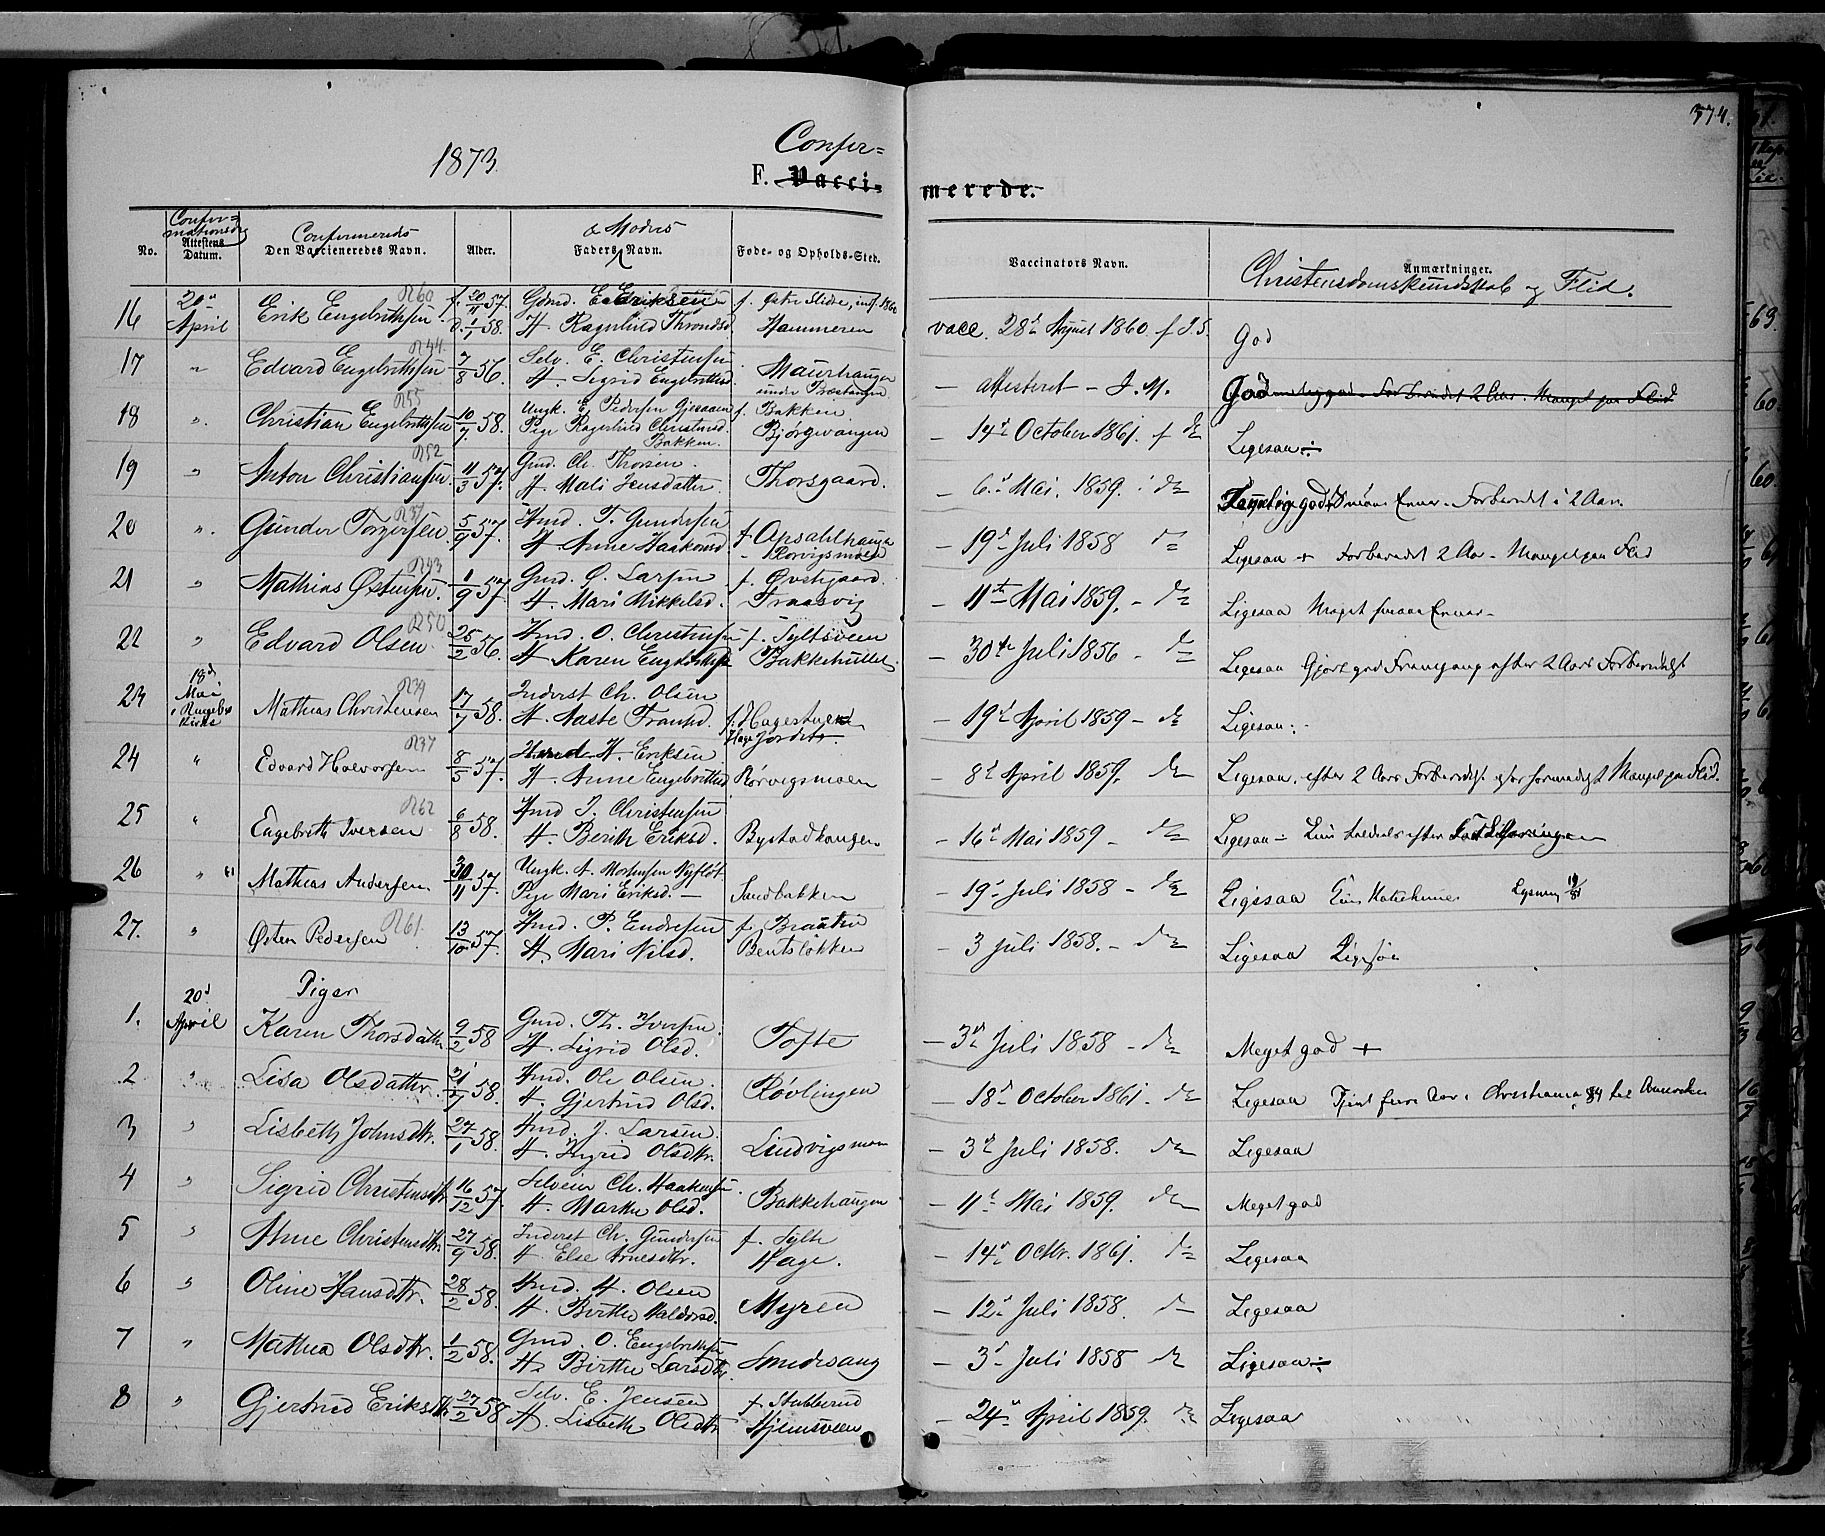 374.
1873
Confir=
F. Vacci- nerede.
No. Confirmationsdag Attestens Datum. Confirmeredes Den Vaccieneredes Navn. Alder. & Moders Faders Navn. Føde- og Opholds-Sted. Vaccinators Navn. Anmærkninger. Christendomskundskab og Flid.
16 20de April Erik Engebrithsen R60 f. 20/11 57. Gmd. E. Eriksen f. Østre Slidre, indf. 1860 vacc. 28de August 1860 f J.S. God
d. 1/1 58. H Ragnhild Throndsd. Hammeren
17 " Edvard Engebrithsen R44 7/8 56. Selv. E. Christensen Maurhaugen – attesteret – J. M. God
H Sigrid Engebrithsd. under Præstangen
18 " Christian Engebrithsen R55 10/7 58. Ungk. E. Pedersen f. Bakken – 14de October 1861. f do Ligesaa ÷
Pige Ragnhild Christensd. Bakken. Bjørgevangen
19 " Anton Christiansen R52 11/3 57. Gmd. Ch. Thorsen Thorsgaard. – 6te Mai. 1859. do Temelig god Forberedt i 2 Aar.
H Mali Jensdatter
20 " Gunder Torgersen R37 5/9 57. Hmd. T. Gundersen f Opsahlhaugen – 19de Juli 1858 do Ligesaa + Forberedt 2 Aar – Mangel paa Flid
H Anne Haakonsd. Rørvigsmoen
21 " Mathias Østensen. R43 1/9 57. Gmd. Ø. Larsen f. Øvstgaard. – 11te Mai 1859. – do Ligesaa Meget smaae Evner –
H. Mari Mikkelsd. Fraasvig
22 " Edvard Olsen R50 25/2 56. Hmd. O. Christensen f. Syltsveen – 30te Juli 1856 – do Ligesaa Gjort god Fremgang efter 2 Aars Forberedelse
H Karen Engebrithsd Bakkehullet
23 18de Mai i Ringebo Kirke Mathias Christensen R39 17/7 58. Inderst Ch. Olsen f. Hagestuen – 19de April 1859 – do Ligesaa.
H. Aaste Fransd. Hage Jordet
24 " Edvard Halvorsen R37 8/5 57. Hmd. H. Eriksen Rørvigsmoen – 8de April 1859. do Ligesaa. efter 2 Aars Forberedelse Mangel paa Flid.
H. Anne Engebrithsd
25 " Engebrith Iversen R62 6/8 58. Hmd I. Christensen Bystadhaugen – 16de Mai 1859 – do Ligesaa –
H. Berith Eriksd.
26 " Mathias Andersen. 30/11 57. Ungk. A. Mortensen Nyfløt Sandbakken – 19de Juli 1858 – do Ligesaa
Pige Mari Eriksd. –
27. " Østen Pedersen R61 13/10 57. Hmd. P. Endresen f. Braaten – 3 Juli 1858. – do Ligesaa
H. Mari Nilsd. Bentsløkken
Piger
1. 20de April Karen Thorsdatter 9/2 58 Gmd. Th. Iversen Tofte – 3de Juli 1858 – do Meget god +
H. Sigrid Olsd.
2 " Lisa Olsdatter. 21/7 58. Hmd. Ole Olsen. Røvlingen – 18de October 1861. – do Ligesaa
H. Gjertrud Olsd.
3 " Lisbeth Johnsdtr. 27/1 58. Hmd. J. Larsen. Lindvigsmoen – 3de Juli 1858. do Ligesaa
H. Ingrid Olsdtr.
4 " Sigrid Christensdtr 16/12 57. Selveier Ch. Haakensen. Bakkehaugen – 11te Mai 1859. do Meget god
H. Marthe Olsd.
5 " Anne Christensdtr. 27/9 58. Inderst Ch. Gundersen f. Sylte – 14de Octbr. 1861. do Ligesaa
H Else Arnesdtr. Hage.
6 " Oline Hansdtr. 28/2 58. Hmd. H. Olsen Myren – 12te Juli 1858. do Ligesaa
H. Birthe Haldorsd.
7 " Mathea Olsdtr. 1/2 58. Gmd. O. Engebrithsen Smidesang – 3de Juli 1858 do Ligesaa ÷
H. Birthe Larsdtr.
8 " Gjertrud Eriksdtr. 27/2 58 Selv. E. Jensen f Stubberud – 24de April 1859. do Ligesaa
H. Lisbeth Olsdtr Hjemsveen